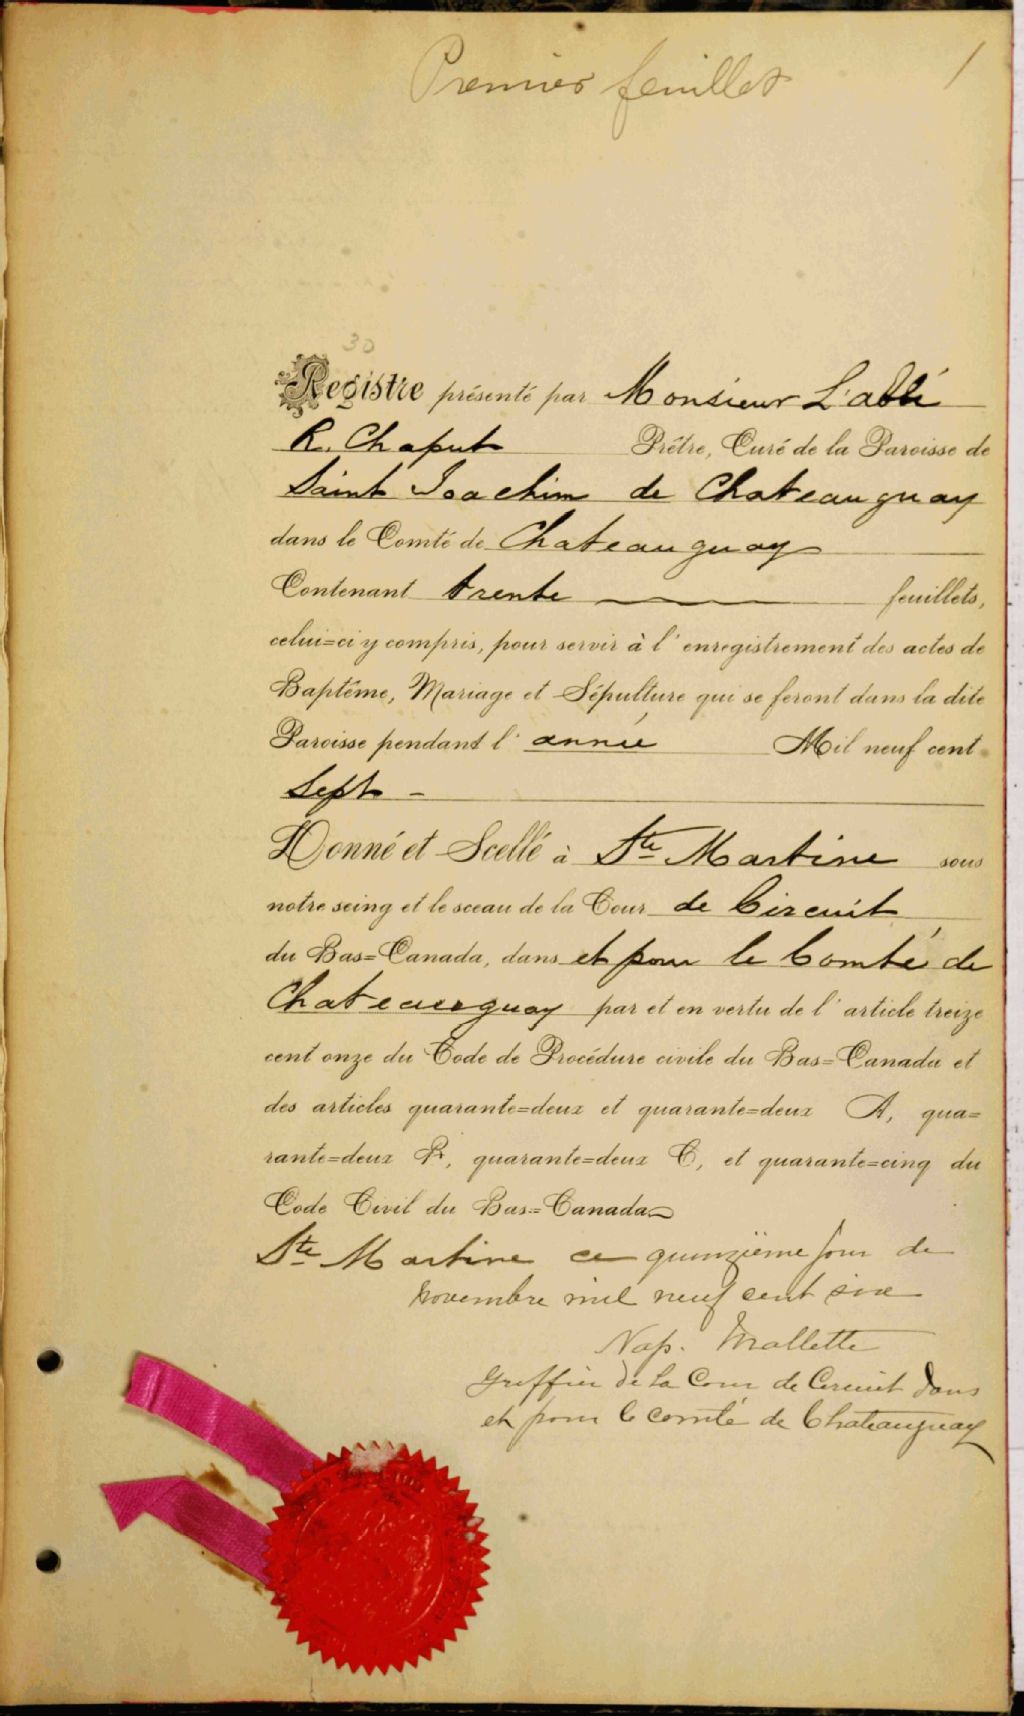 Premier feuillet 1
30
Registre présenté par Monsieur L'abbé
R. Chaput Prêtre, Curé de la Paroisse de
Saint Joachim de Chateauguay
dans le Comté de Chateauguay
Contenant trente feuillets,
celui=ci y compris, pour servir à l'enregistrement des actes de
Baptême, Mariage et Sépulture qui se feront dans la dite
Paroisse pendant l'année Mil neuf cent
Sept -
Donné et Scellé à Ste Martine sous
notre seing et le sceau de la Cour de Circuit
du Bas=Canada, dans et pour le Comté de
Chateauguay par et en vertu de l'article treize
cent onze du Code de Procédure civile du Bas=Canada et
des articles quarante=deux et quarante=deux A, qua=
rante=deux B, quarante=deux C, et quarante=cinq du
Code Civil du Bas=Canada
Ste Martine ce quinzième jour de
novembre mil neuf cent six
Nap. Mallette
Greffier de la Cour de Circuit dans
et pour le comté de Chateauguay